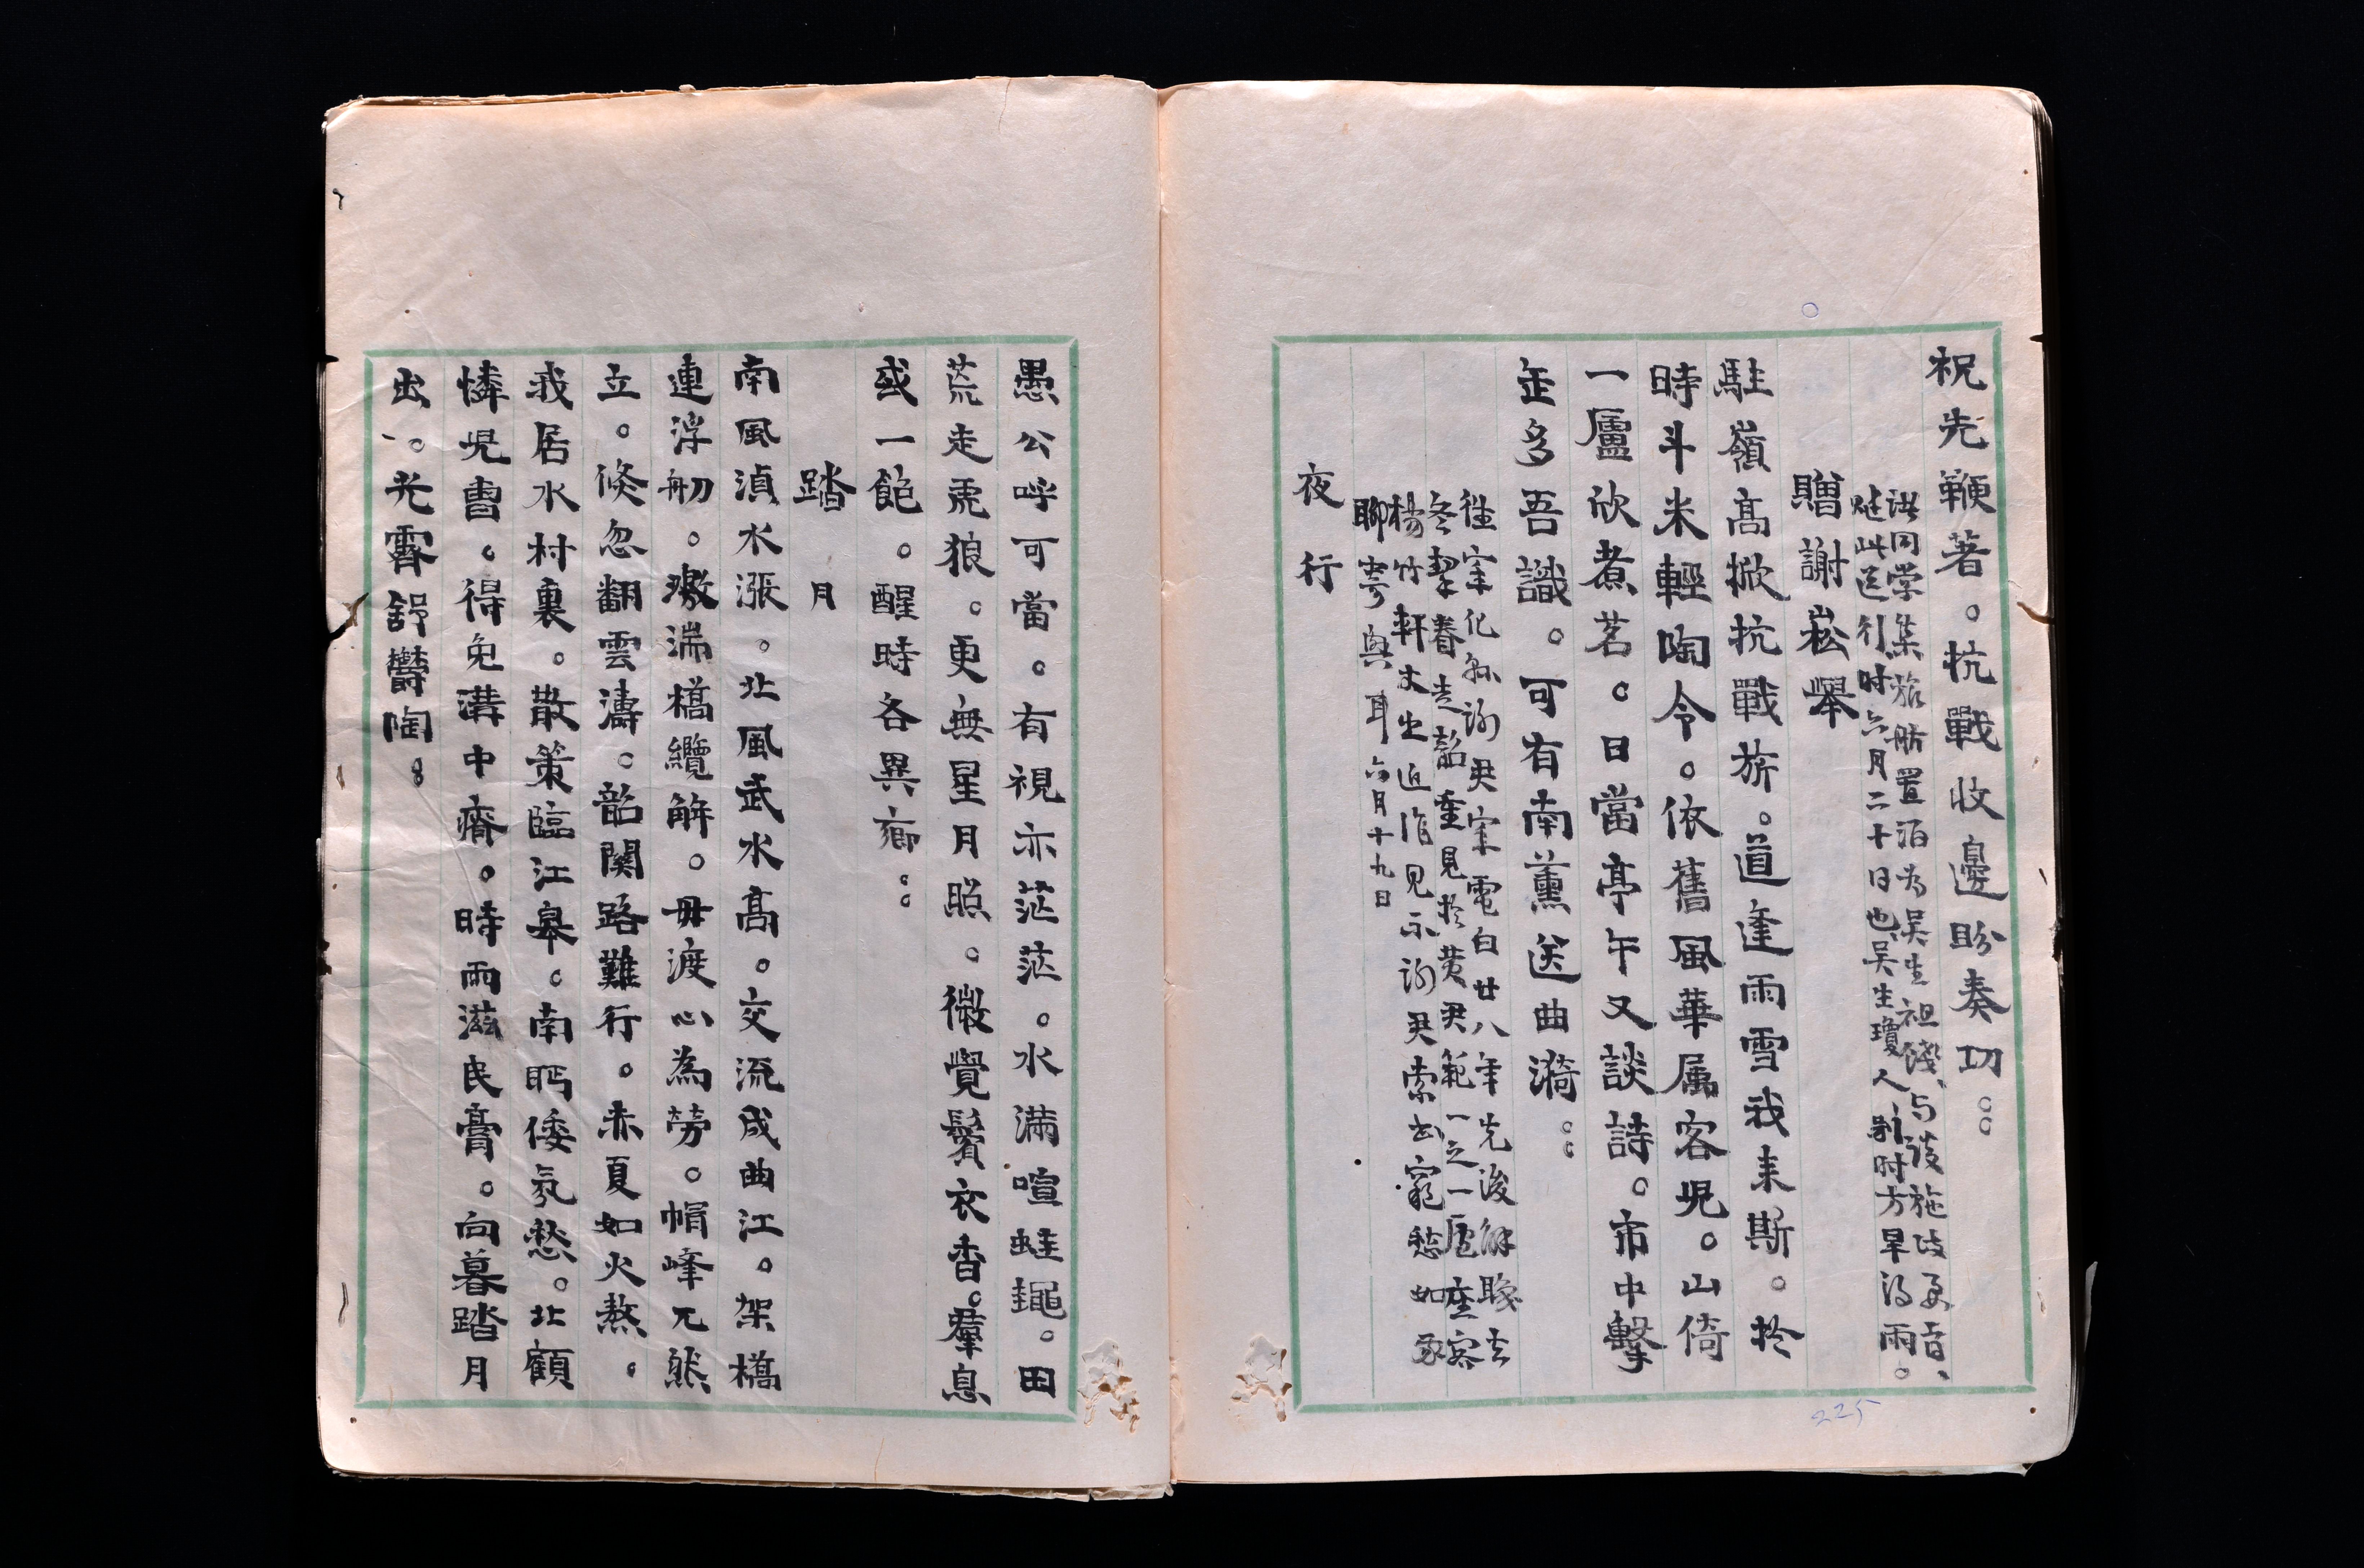 祝先鞭著。抗戰收邊盼奏功。。
諸同学集旅舫置酒為吴生祖餞、与談施政要旨、
赴此送行时六月二十日也吴生瓊人、别时方旱得雨。
贈謝崧舉
駐嶺高掀抗戰旂。道逢雨雪我来斯。於
時斗米輕陶令。依舊風華属客兒。山倚
一廬欣煮茗。日當亭午又談詩。市中擊
缶多吾識。可有南薰送曲漪。。
往宰化縣謝君宰電白廿八年先後解職去
冬挈眷走韶重見於黄君範一之一廬座客
楊竹軒丈出近作見示謝君索書窮愁如我
聊寄興耳六月十九日
夜行
225
愚公呼可當。有視亦茫茫。水滿喧蛙黽。田
荒走虎狼。更無星月照。微覺鬢衣香。羣息
或一飽。醒時各異鄉。。
踏月
南風湞水漲。北風武水高。交流成曲江。架橋
連浮舠。激湍橋纜解。毋渡心為勞。帽峰兀然
立。倏忽翻雲濤。韶関路難行。赤夏如火熬。
我居水村裏。散策臨江皋。南眄倭氛愁。北顧
憐兒曹。得免溝中瘠。時雨滋民膏。向暮踏月
出。光霽舒鬱陶。。